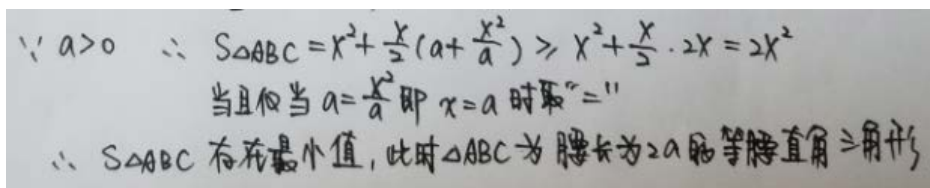 ∵ a>0 ∴ S△ABC = x² + x/2 (a + x²/a) ≥ x² + x/2 · 2x = 2x²
当且仅当 a = x²/a 即 x = a 时取“=”
∴ S△ABC 存在最小值, 此时△ABC为腰长为2a的等腰直角三角形